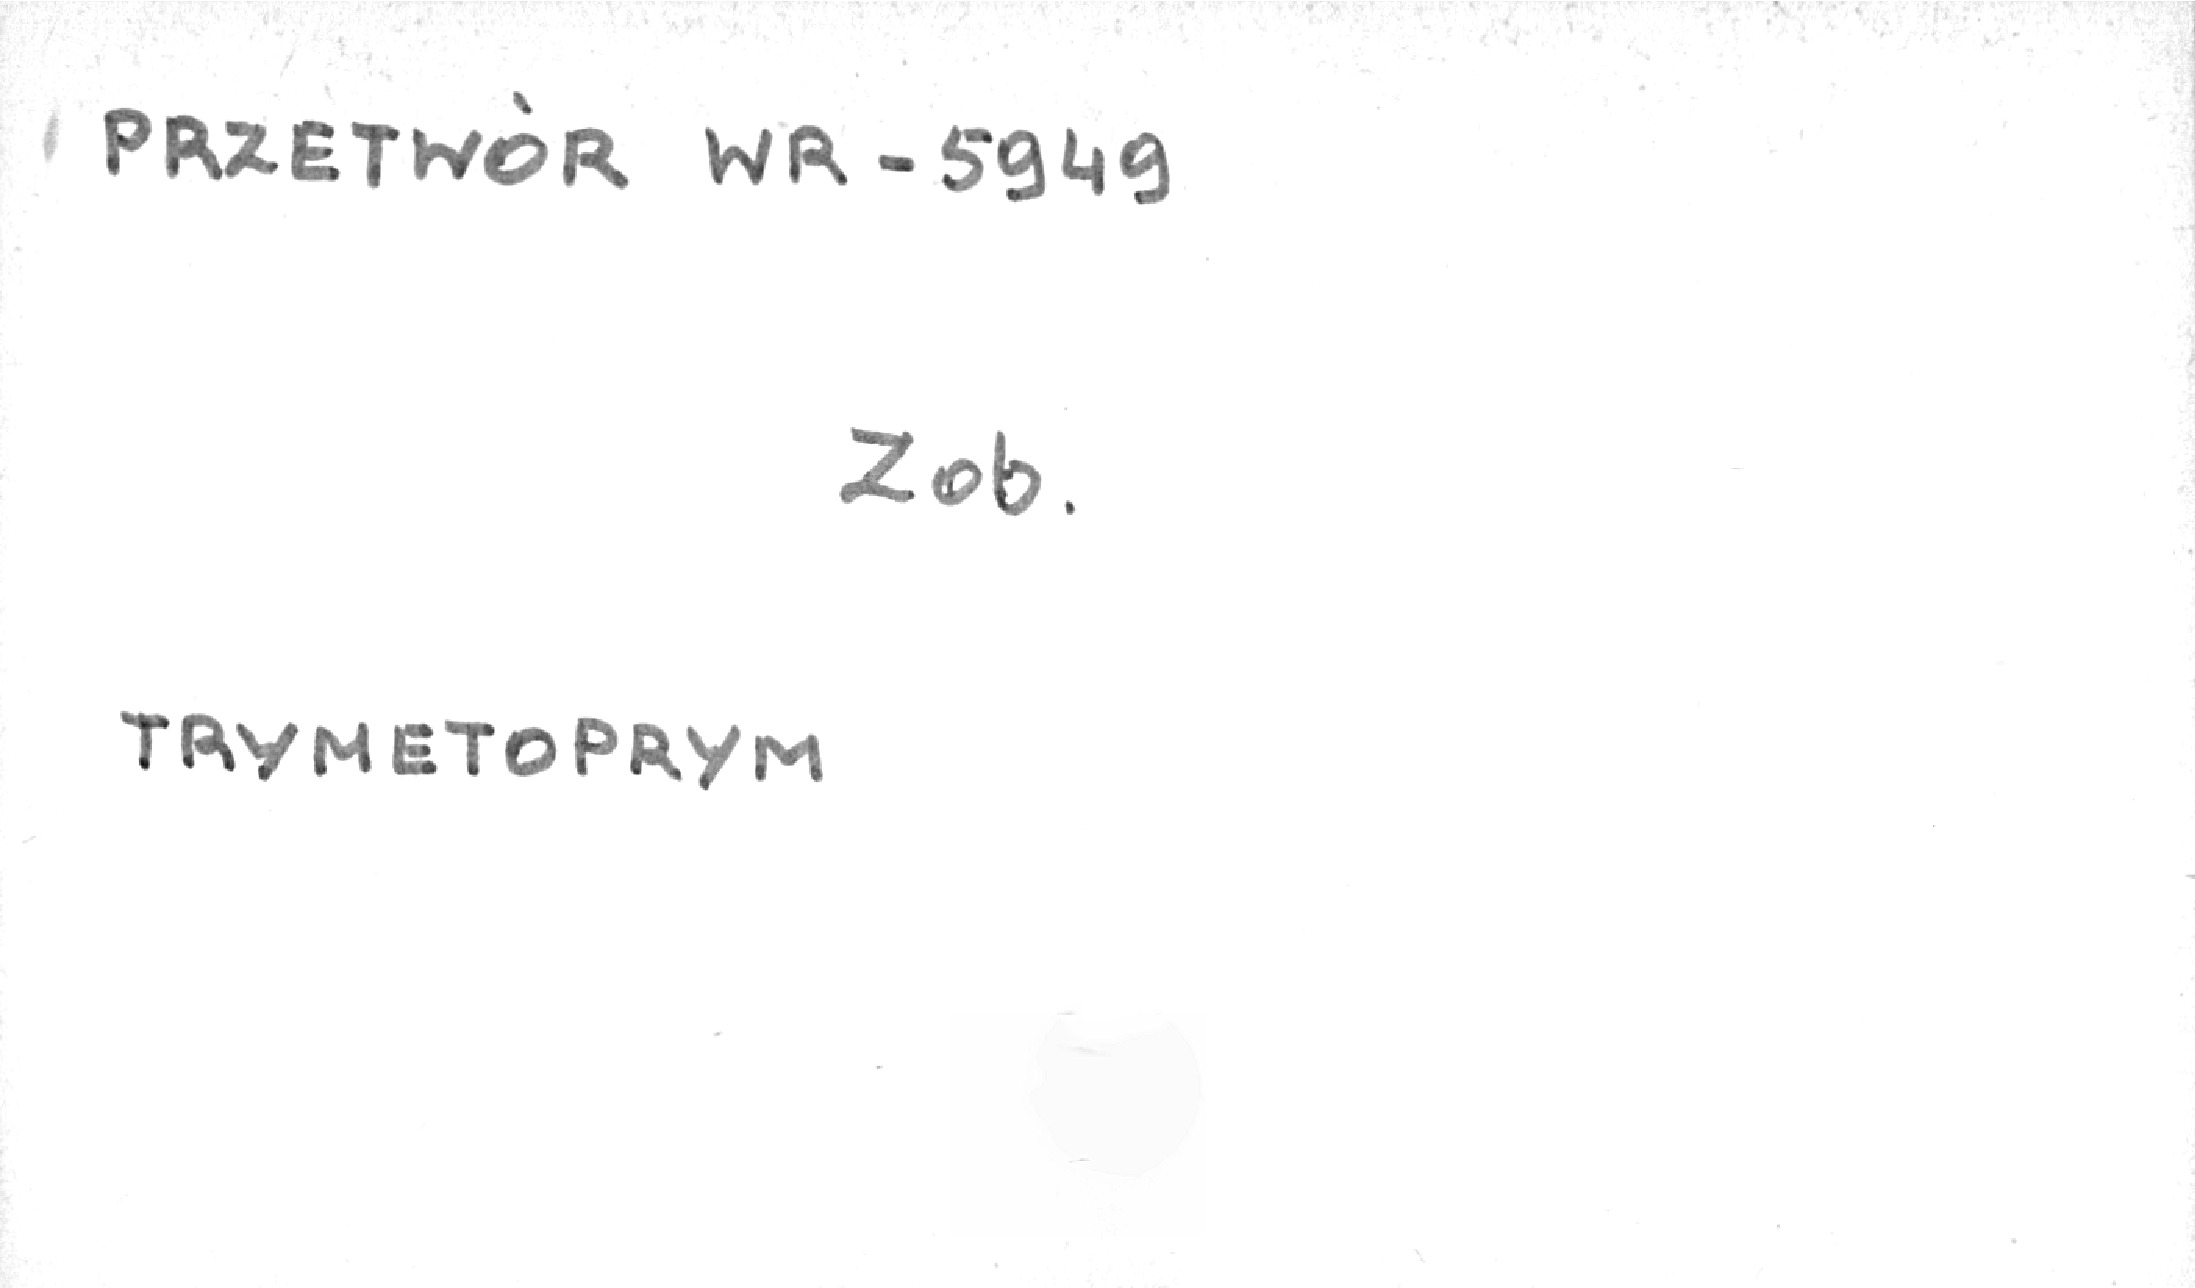 PRZETWÓR WR-5949
Zob.
TRYMETOPRYM